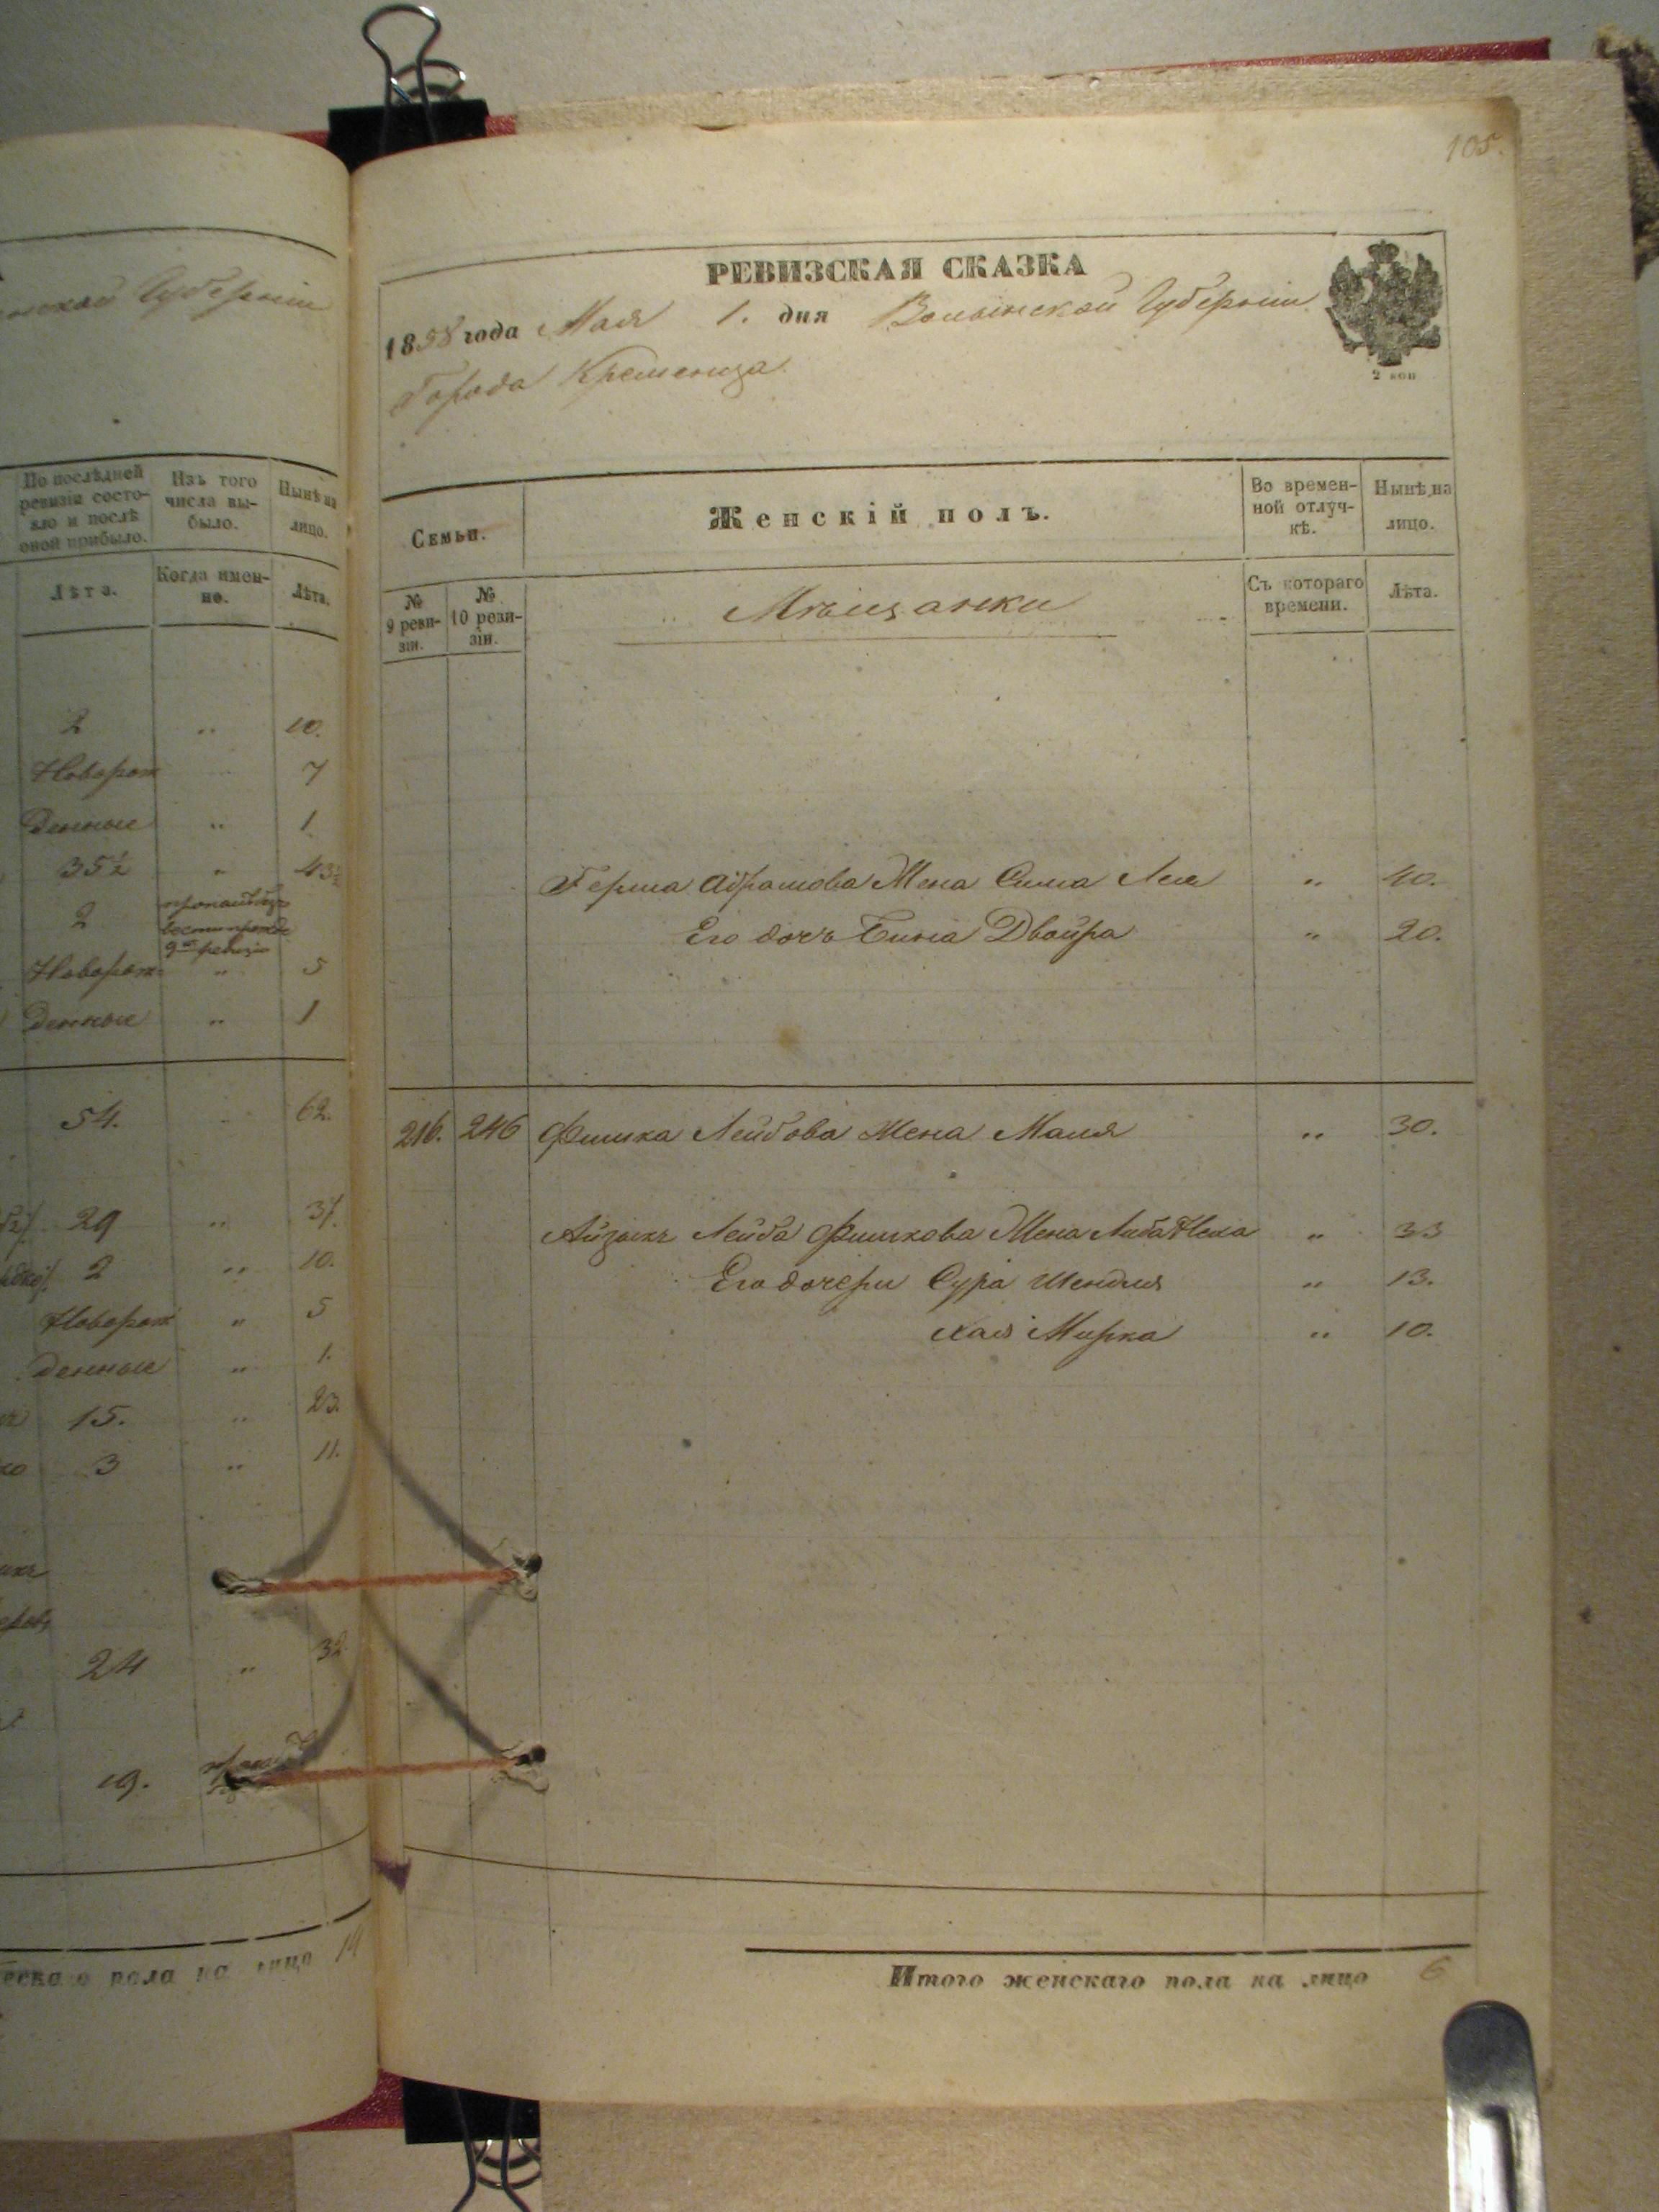 Губерніи
По послѣдней ревизіи состо-
яло и послѣ оной прибыло.
Изъ того числа вы-
было.
Нынѣ на лицо.
Лѣта.
Когда имен-
но.
Лѣта.
2 " 10.
Новорож 7
денные " 1
35½ " 43½
2
9ой ревизіи
Новорож " 5
денные " 1
54. " 62.
29 " 37.
2 " 10.
Новорож " 5
денные " 1.
15. " 23.
3 " 11.
24 " 32
19.
пола на лицо 14
105.
РЕВИЗСКАЯ СКАЗКА
1858 года Мая 1. дня Волынской Губерніи
Города Кременца.
2 коп
Семьи.
Женскій полъ.
Во времен-
ной отлуч-
кѣ.
Нынѣ на
лицо.
№
9 реви-
зіи.
№
10 реви-
зіи.
Мѣщанки
Съ котораго
времени.
Лѣта.
Герша Абрамова Жена Сима Лея " 40.
Его дочь Бина Двойра " 20.
216. 246 Фишка Лейбова Жена Маля " 30.
Айзыкъ Лейба Фишкова Жена Либа Неха " 33
Его дочери Сура Шендля " 13.
Хая Мирка " 10.
Итого женскаго пола на лицо 6